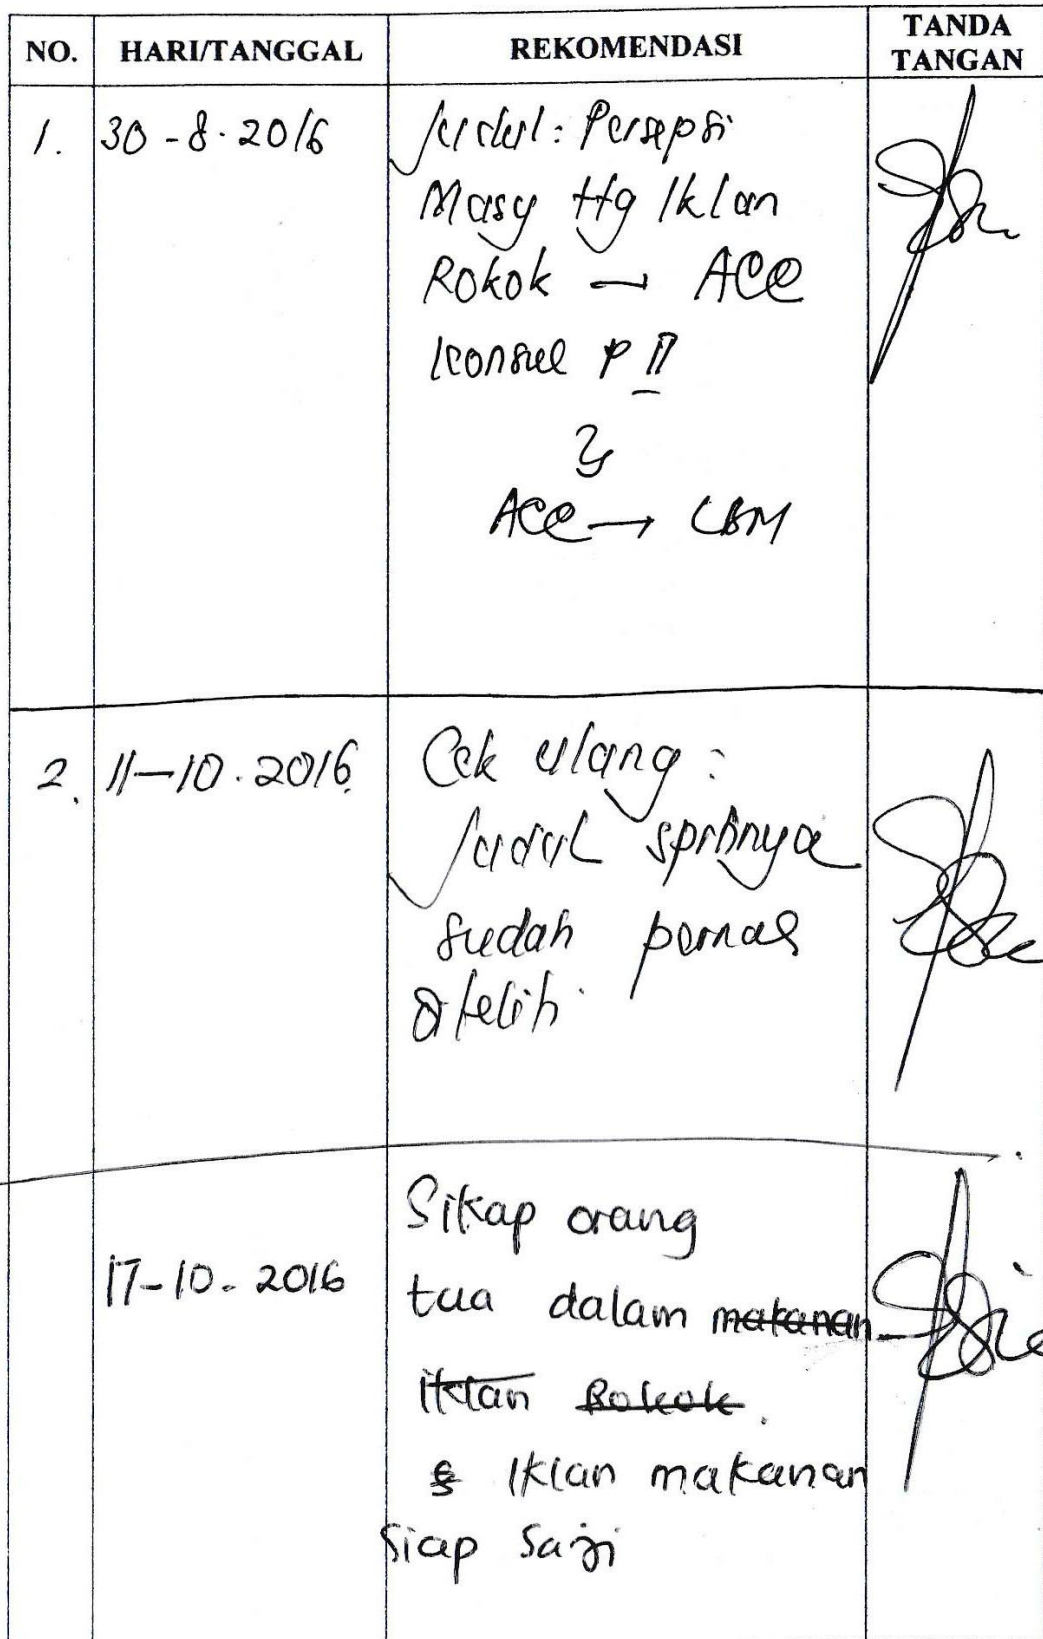 NO. HARI/TANGGAL REKOMENDASI TANDA TANGAN
1. 30-8-2016 Judul: Persepsi
Masy ttg Iklan
Rokok → ACC
Konsul P II
ACC → LBM
2. 11-10-2016 Cek ulang:
Judul sprtnya
sudah pernah
diteliti.
17-10-2016 Sikap orang
tua dalam makanan
iklan Rokok.
Iklan makanan
siap saji